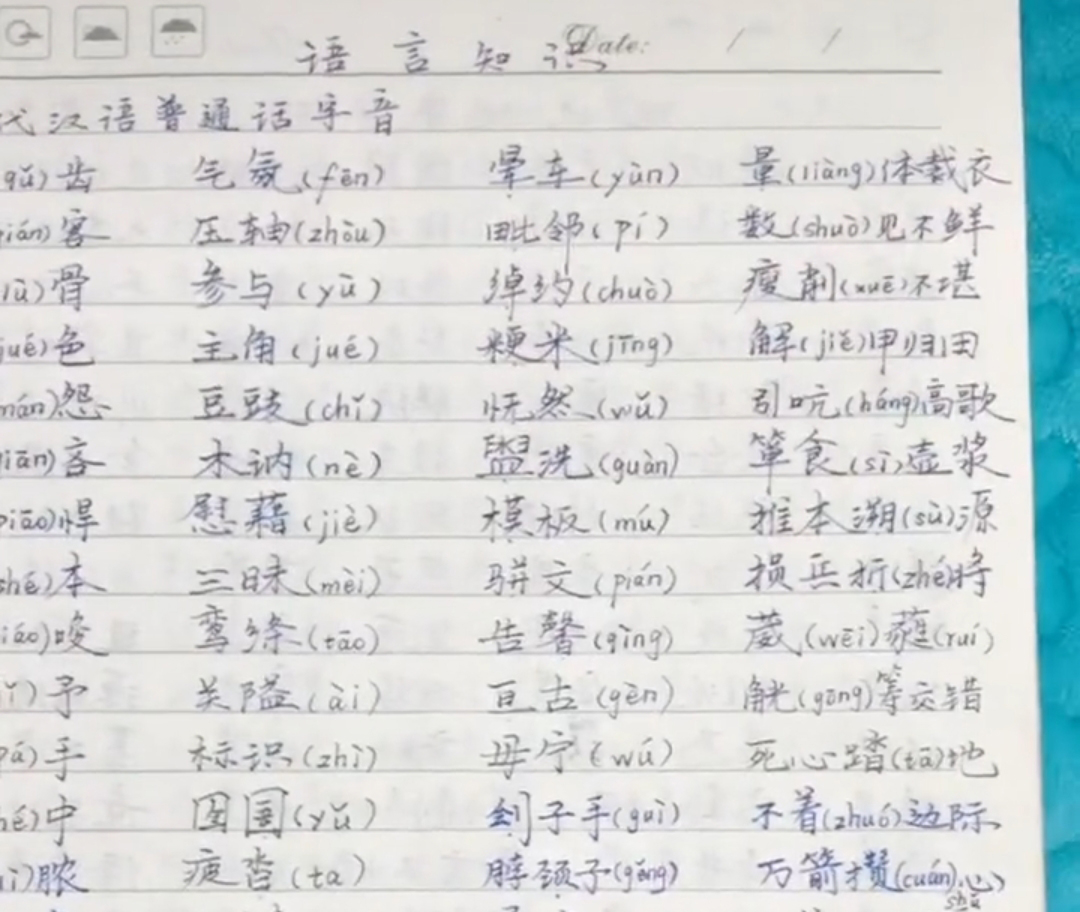 语言知识 Date: / /
代汉语普通话字音
(qǔ)齿 气氛(fēn) 晕车(yùn) 量(liàng)体裁衣
(qián)客 压轴(zhòu) 毗邻(pí) 数(shuò)见不鲜
(lù)骨 参与(yù) 绰约(chuò) 瘦削(xuē)不堪
jué)色 主角(jué) 粳米(jīng) 解(jiě)甲归田
mán)怨 豆豉(chǐ) 怃然(wǔ) 引吭(háng)高歌
iān)吝 木讷(nè) 盥洗(guàn) 箪食(sì)壶浆
piāo)悍 慰藉(jiè) 模板(mú) 推本溯(sù)源
shé)本 三昧(mèi) 骈文(pián) 损兵折(zhé)将
iáo)唆 鸾绦(tāo) 告罄(qìng) 葳(wēi)蕤(ruí)
ǐ)予 关隘(ài) 亘古(gèn) 觥(gōng)筹交错
pá)手 标识(zhì) 毋宁(wú) 死心踏(tā)地
hé)中 囹圄(yǔ) 刽子手(guì) 不着(zhuó)边际
ì)脓 疲沓(ta) 脖颈子(gěng) 万箭攒(cuán)心
shǔ